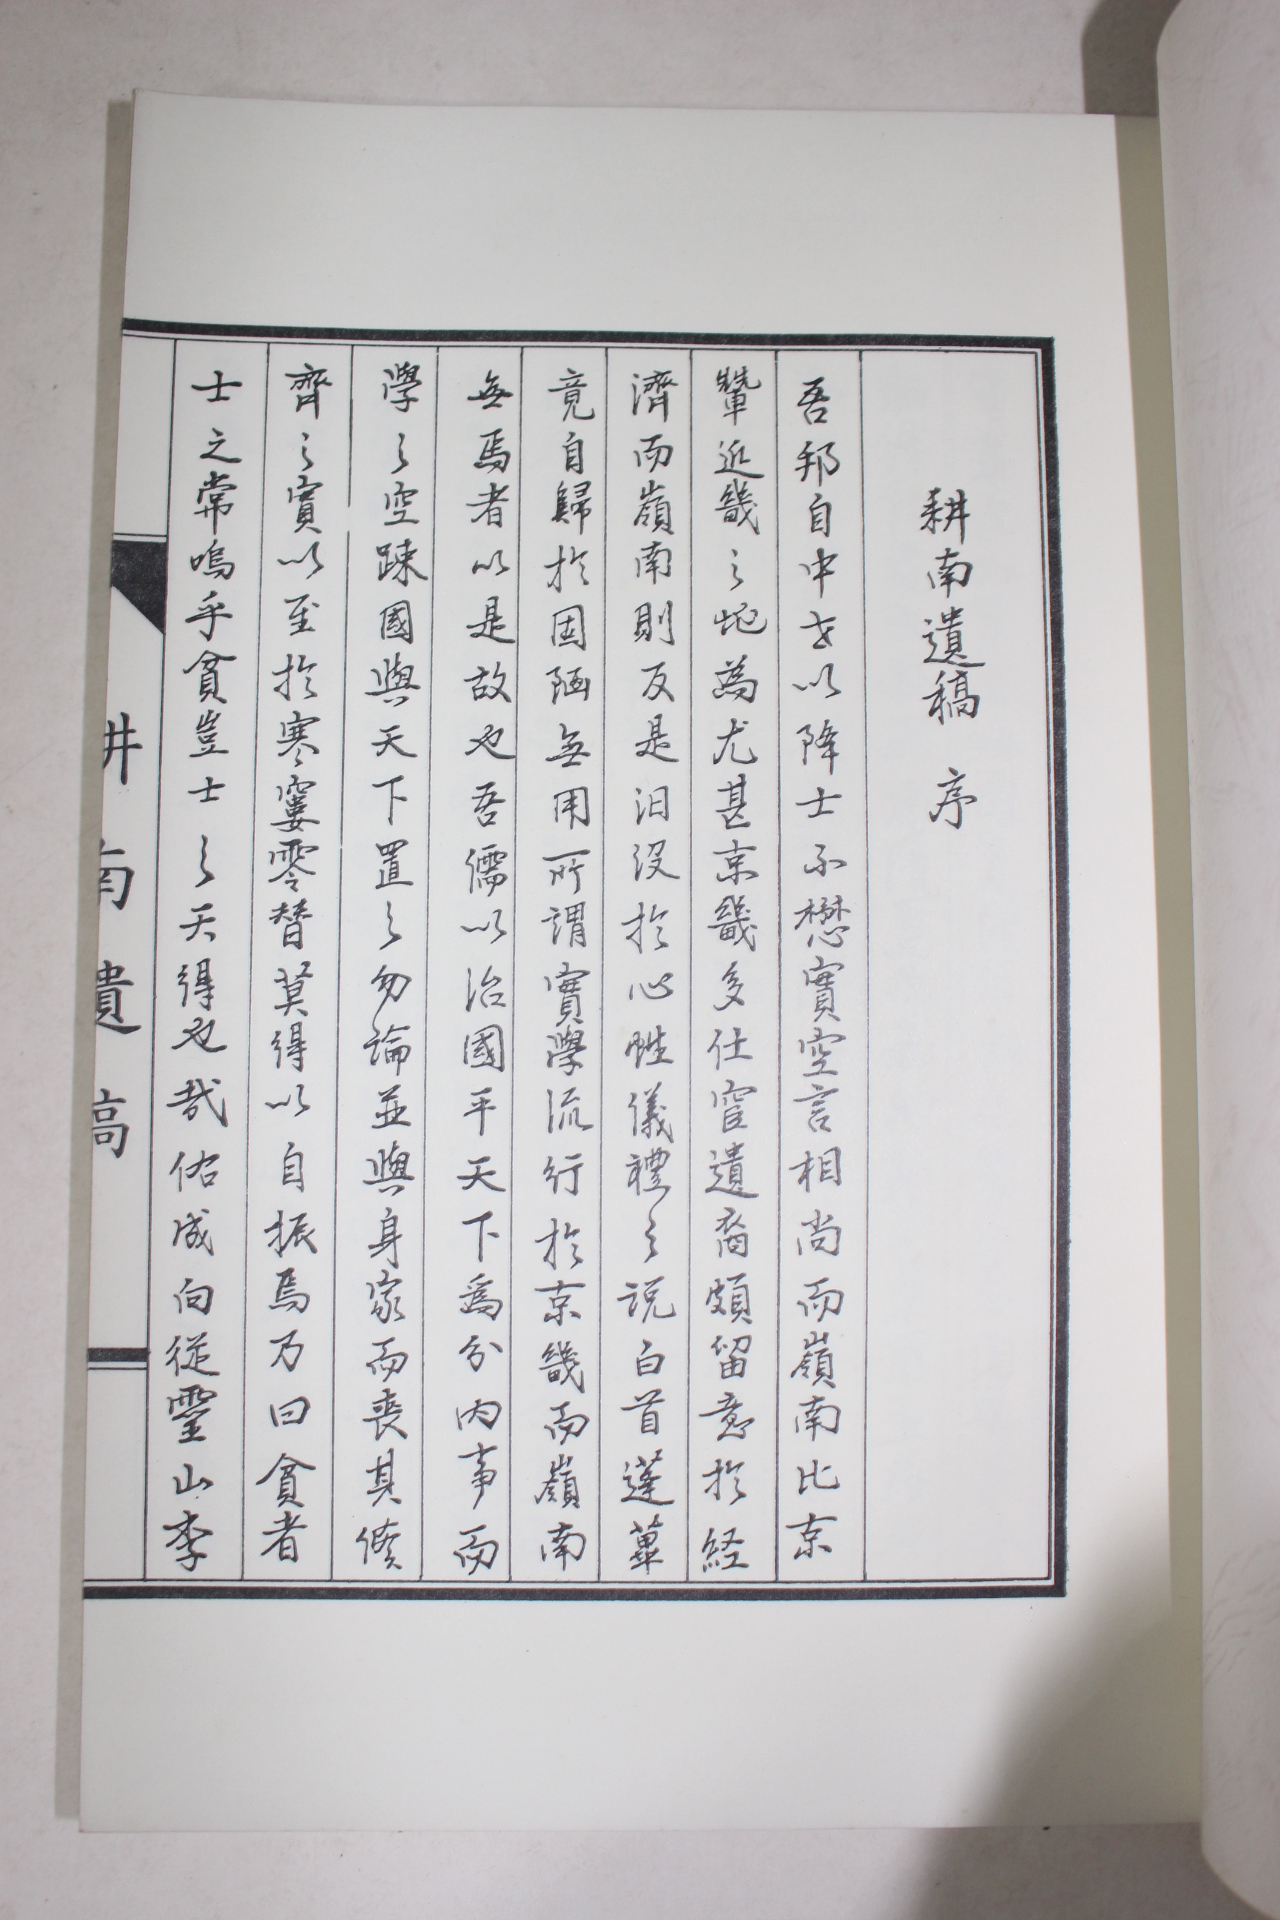 耕南遺稿 序
吾邦自中世以降士不懋實空言相尚而嶺南比京
輦近畿之地為尤甚京畿多仕宦遺裔頗留意於経
濟而嶺南則反是汨没於心性儀禮之説白首蓬蓽
竟自歸於固陋無用所謂實學流行於京畿而嶺南
無焉者以是故也吾儒以治國平天下為分内事而
學之空踈國與天下置之勿論並與身家而喪其脩
齊之實以至於寒窶零替莫得以自振焉乃曰貧者
士之常嗚乎貧豈士之天得也哉佑成向従靈山李
耕南遺稿